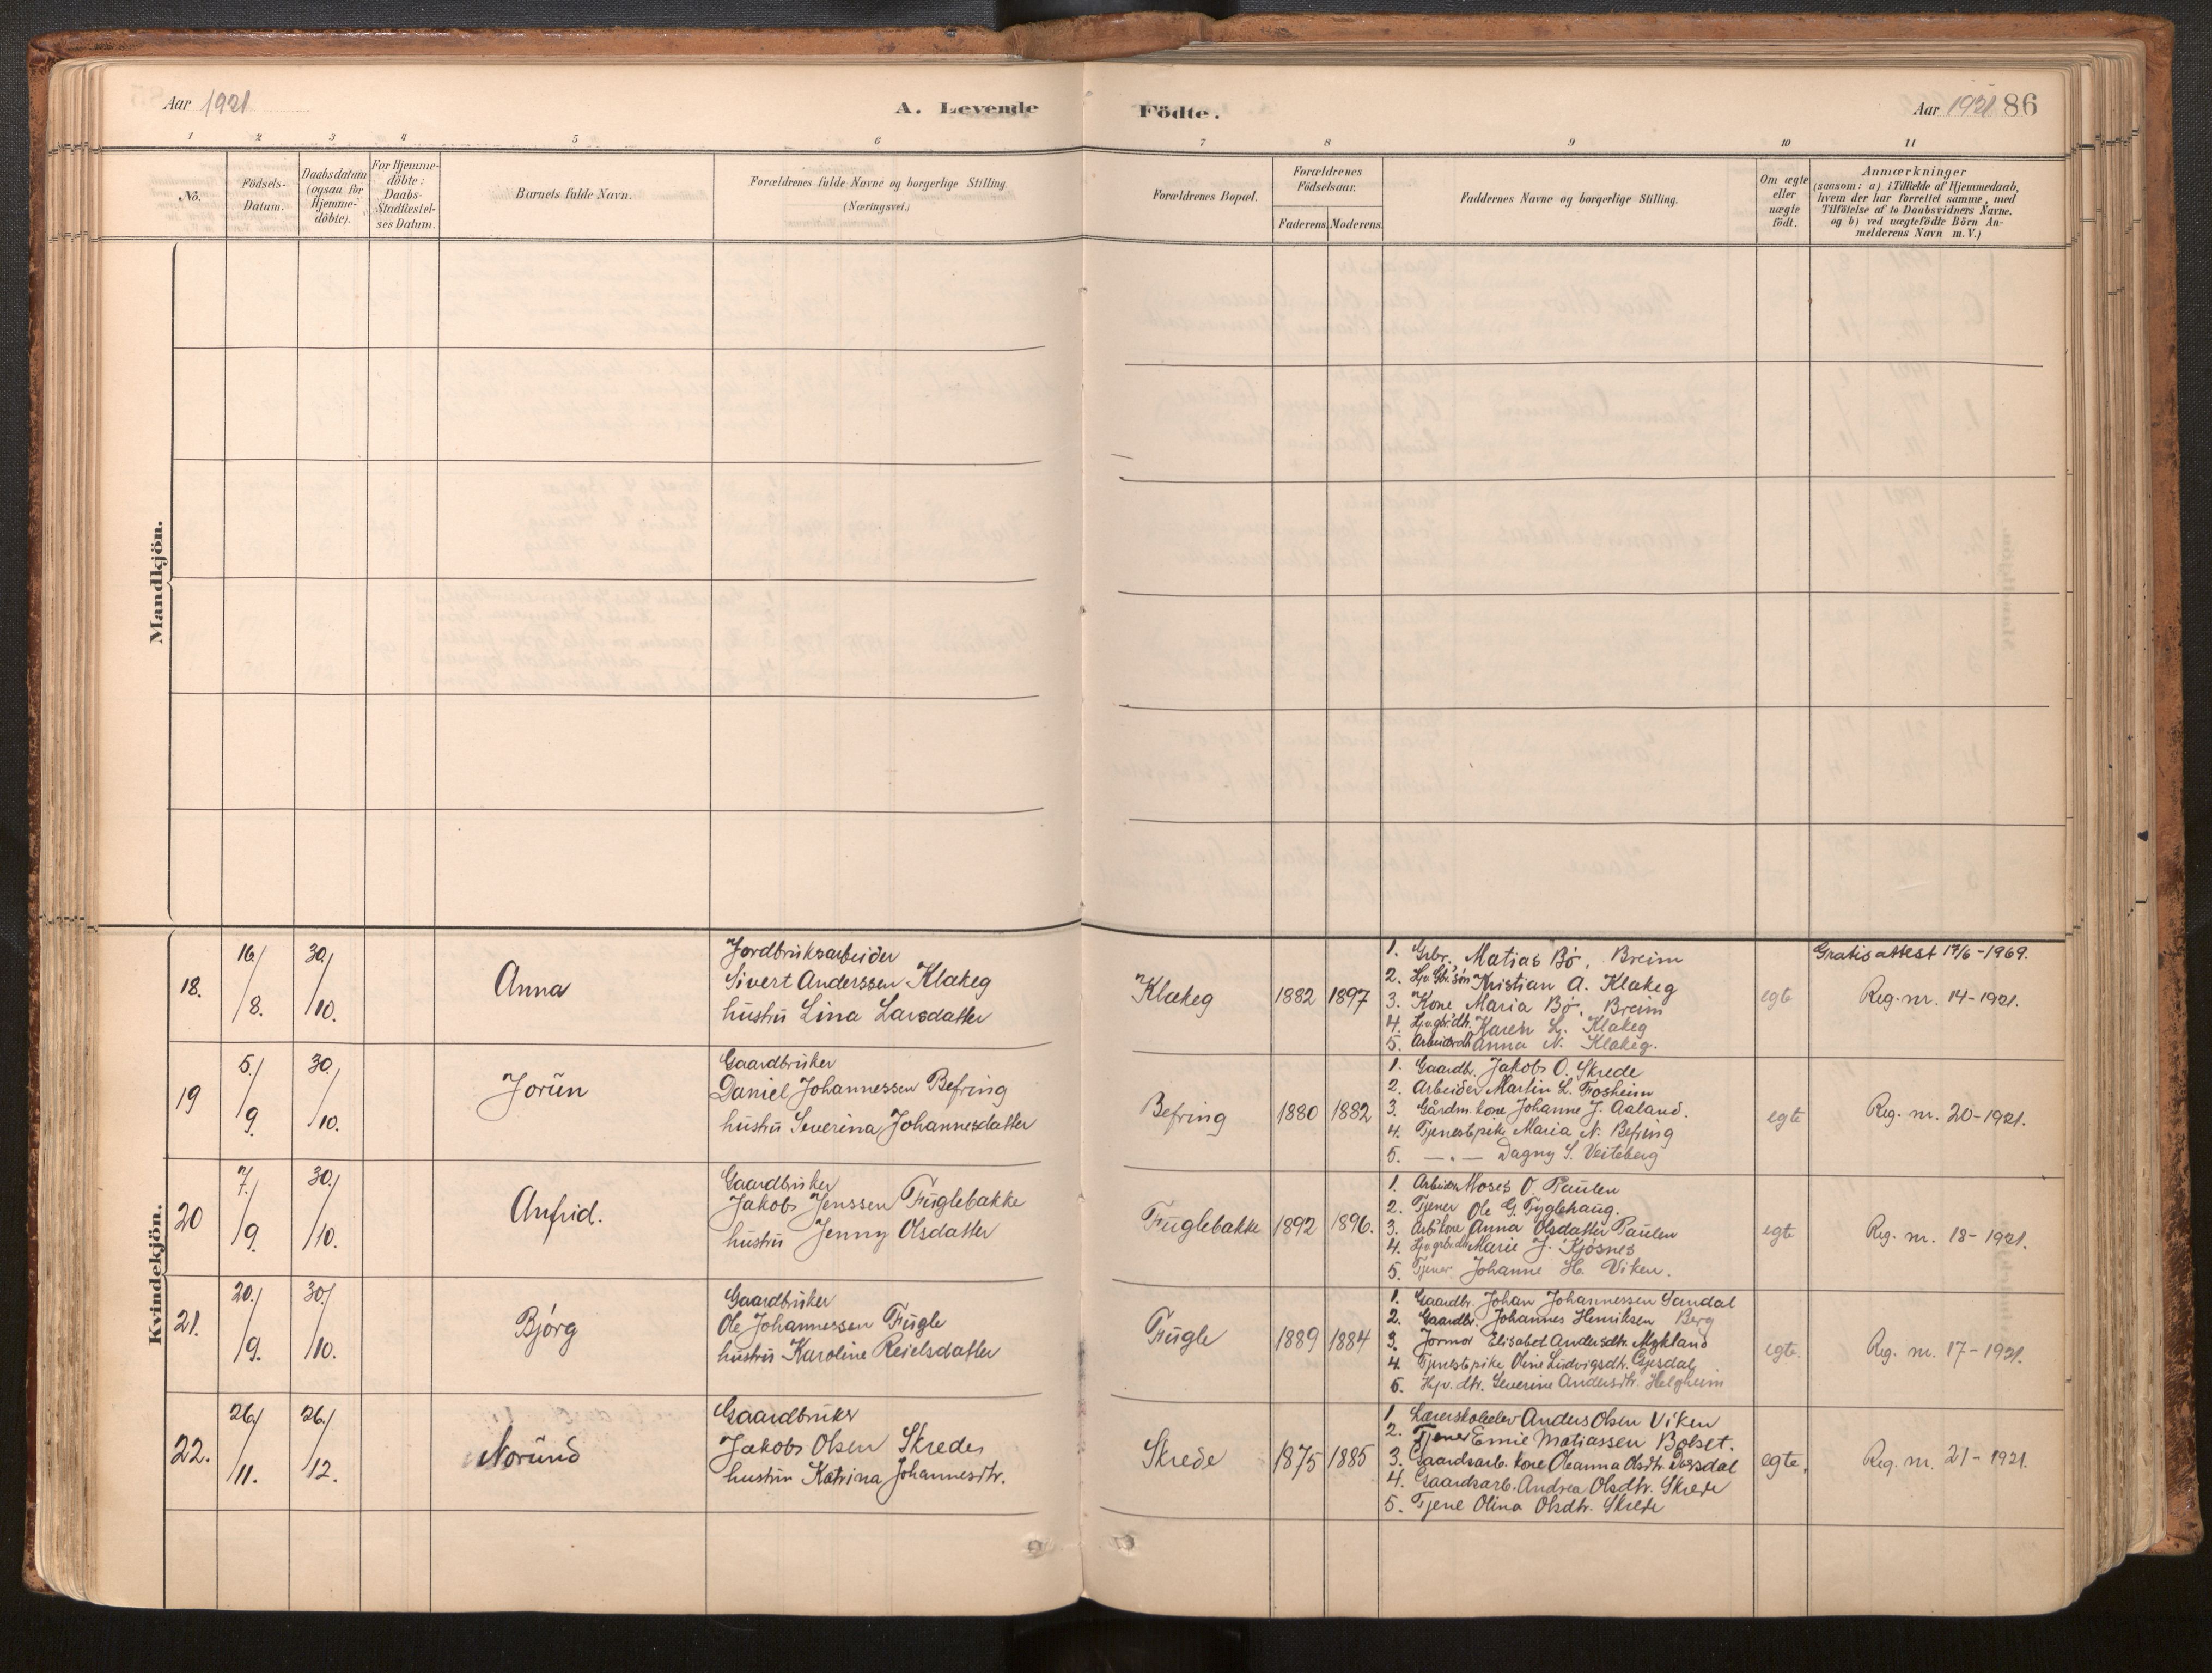 Aar 1921
A. Levende Födte.
Aar 1921 86
1 2 3 4 5 6 7 8 9 10 11
No.
Födsels-Datum.
Daabsdatum (ogsaa for Hjemme-döbte).
For Hjemme-döbte: Daabs-Stadfæstel-ses Datum.
Barnets fulde Navn.
Forældrenes fulde Navne og borgerlige Stilling. (Næringsvei.)
Forældrenes Bopæl.
Forældrenes Födselsaar.
Faderens. Moderens.
Faddernes Navne og borgerlige Stilling.
Om ægte eller uægte födt.
Anmærkninger
(saasom: a) i Tilfælde af Hjemmedaab,
hvem der har forrettet samme, med
Tilföielse af to Daabsvidners Navne.
og b) ved uægtefödte Börn An-
melderens Navn m. V.)
Mandkjön.
Kvindekjön.
18.
16./8.
30./10.
Anna
Jordbruksarbeider
Sivert Anderssen Klakeg
hustru Lina Larsdatter
Klakeg
1882 1897
1. Grbr. Matias Bø, Breim
2. Kristian A. Klakeg
3. Kone Maria Bø, Breim
4. Karen L. Klakeg
5. Arbeiderdt. Anna N. Klakeg.
egte
Gratisattest 17/6-1969.
Reg. nr. 14-1921.
19
5./9.
30./10.
Jorun
Gaardbruker
Daniel Johannessen Befring
hustru Severina Johannesdatter
Befring
1880 1882
1. Gaardb. Jakob O. Skrede
2. Arbeider Martin L. Fosheim
3. Gårdm. kone Johanne J. Aaland.
4. Tjenestepike Maria N. Befring
5. —„— Dagny S. Veiteberg
egte
Reg. nr. 20-1921.
20
7./9.
30./10.
Anfrid.
Gaardbruker
Jakob Jenssen Fuglebakke
hustru Jenny Olsdatter
Fuglebakke
1892 1896.
1. Arbeider Moses O. Paulen
2. Tjener Ole G. Fyglehaug.
3. Arb's kone Anna Olsdatter Paulen
4. Marie J. Kjøsnes
5. Tjener Johanne H. Viken.
egte
Reg. nr. 18-1921.
21.
20./9.
30./10.
Bjørg
Gaardbruker
Ole Johannessen Fugle
hustru Karoline Reielsdatter
Fugle
1889 1884
1. Gaardbr. Johan Johannessen Sandal
2. Gaardbr. Johannes Henriksen Berg
3. Jormor Elisabet Andersdtr. Mykland
4. Tjenestepike Oline Ludvigsdtr. Gjesdal
5. Hjv. dtr. Severine Andersdtr. Helgheim
egte.
Reg. nr. 17-1921.
22.
26./11.
26./12.
Norund
Gaardbruker
Jakob Olsen Skrede
hustru Katrina Johannesdtr.
Skrede
1875 1885
1. Lærerskoleelev Anders Olsen Viken
2. Tjener Emil Matiassen Bolset.
3. Gaardsarb. kone Oleanna Olsdtr.
4. Gaardsarb. Andrea Olsdtr. Skrede
5. Tjene Olina Olsdtr. Skrede
egte.
Reg. nr. 21-1921.